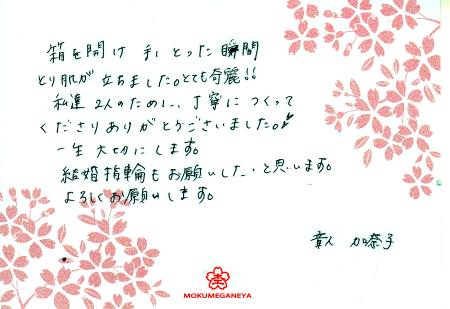 箱を開け 手にとった瞬間
とり肌が立ちました。とても奇麗!!
私達2人のために、丁寧につくって
くださりありがとうございました。
一生大切にします。
結婚指輪もお願いしたいと思います。
よろしくお願いします。
加奈子
MOKUMEGANEYA